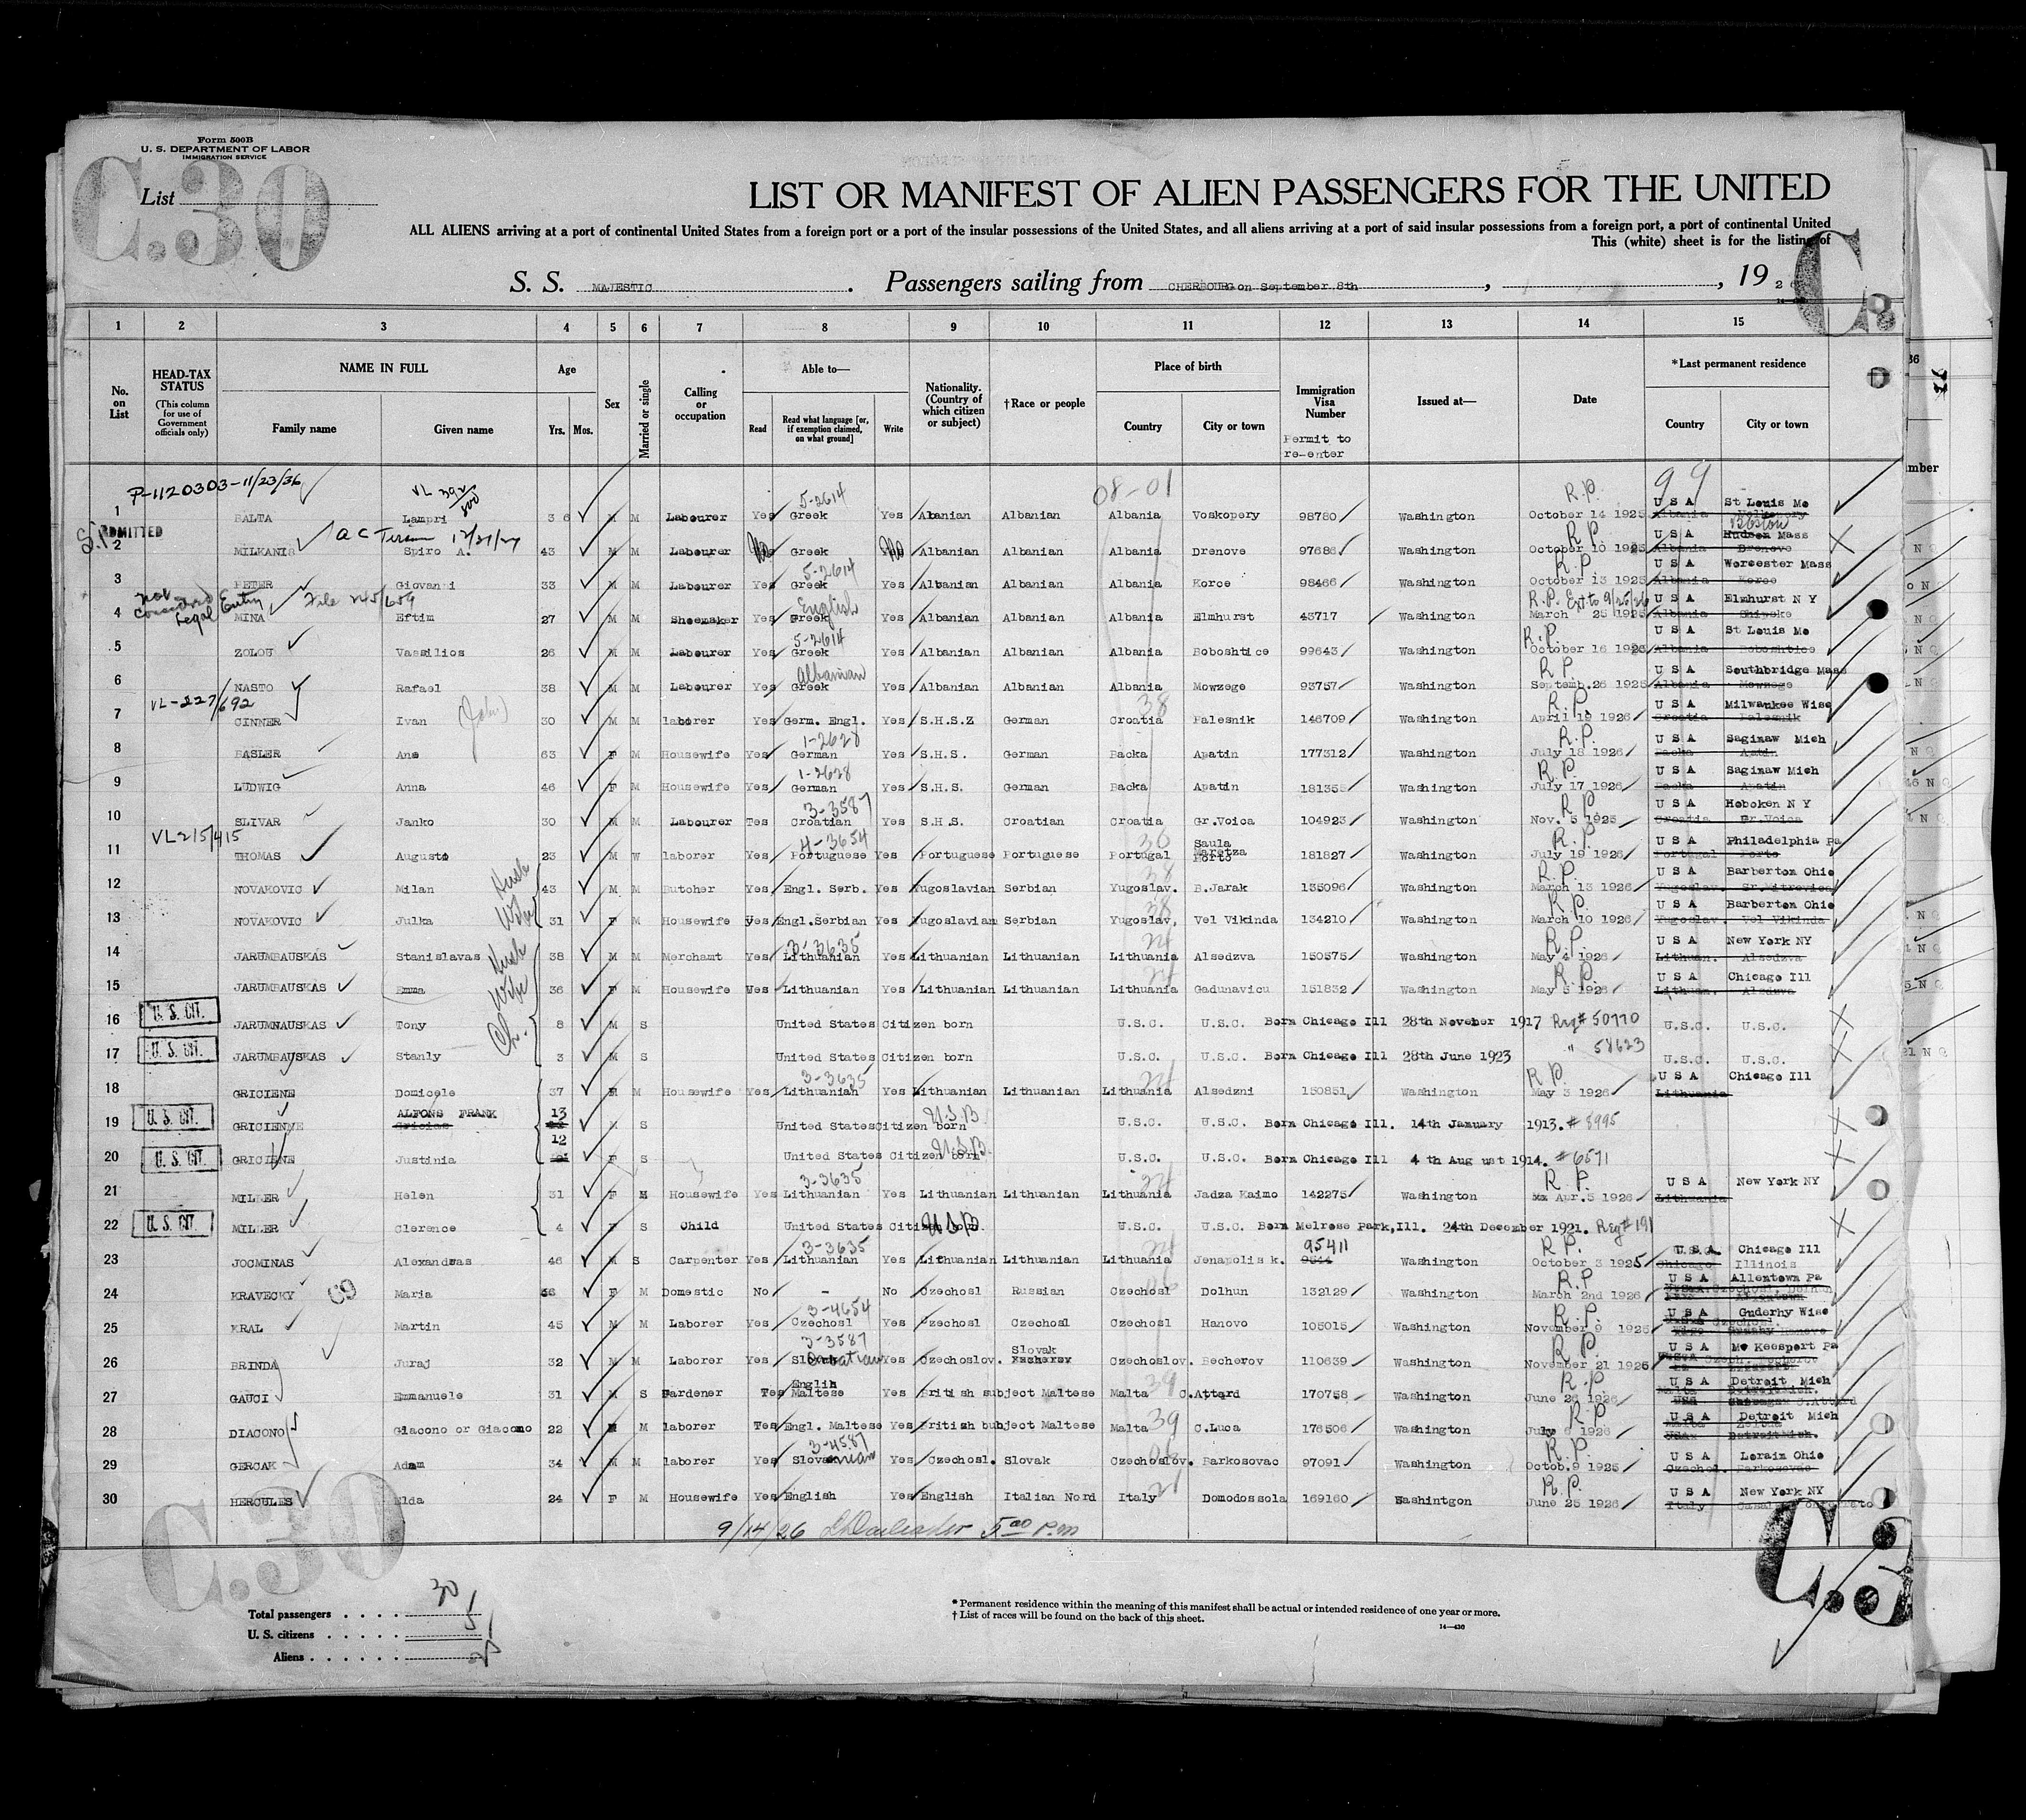 Form 500B
U. S. DEPARTMENT OF LABOR
IMMIGRATION SERVICE
C.30
List
LIST OR MANIFEST OF ALIEN PASSENGERS FOR THE UNITED
ALL ALIENS arriving at a port of continental United States from a foreign port or a port of the insular possessions of the United States, and all aliens arriving at a port of said insular possessions from a foreign port, a port of continental United
This (white) sheet is for the listing of
S. S. MAJESTIC. Passengers sailing from CHERBOURG on September 8th, , 19 2
1 2 3 4 5 6 7 8 9 10 11 12 13 14 15
No. on List
HEAD-TAX STATUS (This column for use of Government officials only)
NAME IN FULL
Family name Given name
Age Yrs. Mos.
Sex
Married or single
Calling or occupation
Able to—
Read Read what language [or, if exemption claimed, on what ground] Write
Nationality. (Country of which citizen or subject)
†Race or people
Place of birth
Country City or town
Immigration Visa Number
Permit to re-enter
Issued at—
Date
*Last permanent residence
Country City or town
P-1120303-11/23/36 VL 392/800 5-2614 08-01 R.P. 99 U S A St Louis Mo
1 BALTA Lampri 36 M M Labourer Yes Greek Yes Albanian Albanian Albania Voskopery 98780 Washington October 14 1925 Albania
ADMITTED A C 12/21/27 R.P. U S A Hudson Mass Boston
2 MILKANIS Spiro A. 43 M M Labourer No Greek No Albanian Albanian Albania Drenove 97686 Washington October 10 1925 Albania Drenove
5-2614 R.P. U S A Worcester Mass
3 PETER Giovanni 33 M M Labourer Yes Greek Yes Albanian Albanian Albania Korce 98466 Washington October 13 1925 Albania Korce
not considered Legal Entry File 245/659 English R.P. Ext to 9/25/26 U S A Elmhurst N Y
4 MINA Eftim 27 M M Shoemaker Yes Greek Yes Albanian Albanian Albania Elmhurst 43717 Washington March 25 1925 Albania Shipske
5-2614 R.P. U S A St Louis Mo
5 ZOLOU Vassilios 26 M M Labourer Yes Greek Yes Albanian Albanian Albania Boboshtice 99643 Washington October 16 1925 Albania Boboshtice
Albanian R.P. U S A Southbridge Mass
6 NASTO Rafael 38 M M Labourer Yes Greek Yes Albanian Albanian Albania Mowzege 93757 Washington Septemb.26 1925 Albania Mowzege
VL-227/692 (John) 38 R.P. U S A Milwaukee Wisc
7 CINNER Ivan 30 M M laborer Yes Germ. Engl. Yes S.H.S.Z German Croatia Palesnik 146709 Washington April 19 1926 Croatia Palesnik
1-2628 R.P. U S A Saginaw Mich
8 BASLER Ana 63 F M Housewife Yes German Yes S.H.S. German Backa Apatin 177312 Washington July 18 1926 Backa
1-2628 R.P. U S A Saginaw Mich
9 LUDWIG Anna 46 F M Housewife Yes German Yes S.H.S. German Backa Apatin 181355 Washington July 17 1926 Backa Apatin
3-3587 R.P. U S A Hoboken N Y
10 SLIVAR Janko 30 M M Labourer Tes Croatian Yes S.H.S. Croatian Croatia Gr.Voica 104923 Washington Nov. 5 1925 Croatia Gr.Voica
VL215/415 4-3654 36 Saula R.P. U S A Philadelphia Pa
11 THOMAS Augusto 23 M W laborer Yes Portuguese Yes Portuguese Portuguese Portugal Porto 181827 Washington July 19 1926 Portugal Porto
Husb 38 R.P. U S A Barberton Ohio
12 NOVAKOVIC Milan 43 M M Butcher Yes Engl. Serb. Yes Yugoslavian Serbian Yugoslav. B.Jarak 135096 Washington March 13 1926 Yugoslav. Sr.Mitrovica
Wife 38 R.P. U S A Barberton Ohio
13 NOVAKOVIC Julka 31 F M Housewife yes Engl.Serbian Yes Yugoslavian Serbian Yugoslav, Vel Vikinda 134210 Washington March 10 1926 Yugoslav. Vel Vikinda
Husb 3-3635 24 R.P. U S A New York NY
14 JARUMBAUSKAS Stanislavas 38 M M Merchamt Yes Lithuanian Yes Lithuanian Lithuanian Lithuania Alsedzva 150575 Washington May 4 1926 Lithuan. Alsedzva
Wife 24 R.P. U S A Chicago Ill
15 JARUMBAUSKAS Emma 36 F M Housewife Yes Lithuanian Yes Lithuanian Lithuanian Lithuania Gadunavicu 151832 Washington May 5 1926 Lithuan. Alsedzva
16 U. S. CIT. JARUMNAUSKAS Tony Ch. 8 M S United States Citizen born U.S.C. U.S.C. Born Chicago Ill 28th Novenber 1917 Reg# 50770 U.S.C. U.S.C.
17 U. S. CIT. JARUMBAUSKAS Stanly 3 M S United States Citizen born U.S.C. U.S.C. Born Chicago Ill 28th June 1923 " 58623 U.S.C. U.S.C.
3-3635 24 R.P. U S A Chicago Ill
18 GRICIENE Domicele 37 F M Housewife Yes Lithuanian Yes Lithuanian Lithuanian Lithuania Alsedzni 150851 Washington May 3 1926 Lithuania
ALFONS FRANK 13 U.S.B
19 U. S. CIT. GRICIENNE M S United States Citizen born U.S.C. U.S.C. Born Chicago Ill. 14th January 1913. # 8995
12 U.S.B.
20 U. S. CIT. GRICIENE Justinia F S United States Citizen born U.S.C. U.S.C. Born Chicago Ill 4 th Aug ust 1914. #6571
3-3635 24 R.P. U S A New York NY
21 MILLER Helen 31 F M Housewife Yes Lithuanian Yes Lithuanian Lithuanian Lithuania Jadza Kaimo 142275 Washington Apr.5 1926 Lithuania
22 U. S. CIT. MILLER Clerence 4 F S Child United States Citizen born U.S.B U.S.C. U.S.C. Born Melrose Park,Ill. 24th December 1921. Reg# 191
3-3635 24 95411 R.P. U S A Chicago Ill
23 JOCMINAS Alexandras 46 M S Carpenter Yes Lithuanian Yes Lithuanian Lithuanian Lithuania Jenapolis k. 9541 Washington October 3 1925 Chicago Illinois
69 06 R.P. U S A Allentown Pa
24 KRAVECKY Maria 56 F M Domestic No - No Czechosl Russian Czechosl Dolhun 132129 Washington March 2nd 1926
3-4654 R.P. U S A Cuderhy Wisc
25 KRAL Martin 45 M M Laborer Yes Czechosl Yes Czechosl Czechosl Czechosl Hanovo 105015 Washington November 9 1925
3-3587 Slovak R.P. U S A Mc Keesport Pa
26 BRINDA Juraj 32 M M Laborer Yes Yes Czechoslov. Czechoslov. Becherov 110639 Washington November 21 1925
Englih 39 R.P. U S A Detroit Mich
27 GAUCI Emmanuele 31 M S Gardener Tes Maltese Yes British subject Maltese Malta C.Attard 170758 Washington June 26 1926
39 R.P U S A Detroit Mich
28 DIACONO Giacono or Giacomo 22 M M laborer Tes Engl. Maltese Yes British bubject Maltese Malta C.Luca 176506 Washington July 6 1926 USA Detroit Mich.
3-4587 06 R.P. U S A Lorain Ohio
29 GERCAK Adam 34 M M laborer Yes Yes Czechosl. Slovak Czechoslov. Barkosovac 97091 Washington Octob.9 1925 Czechol. Barkosovac
21 R.P. U S A New York NY
30 HERCULES Elda 24 F M Housewife Yes English Yes English Italian Nord Italy Domodossola 169160 Washintgon June 25 1926 Italy
9/14/26 5 00 P.m
C.30
Total passengers . . . . 30
U. S. citizens . . . . . 5
Aliens . . . . . .
* Permanent residence within the meaning of this manifest shall be actual or intended residence of one year or more.
† List of races will be found on the back of this sheet.
14—430